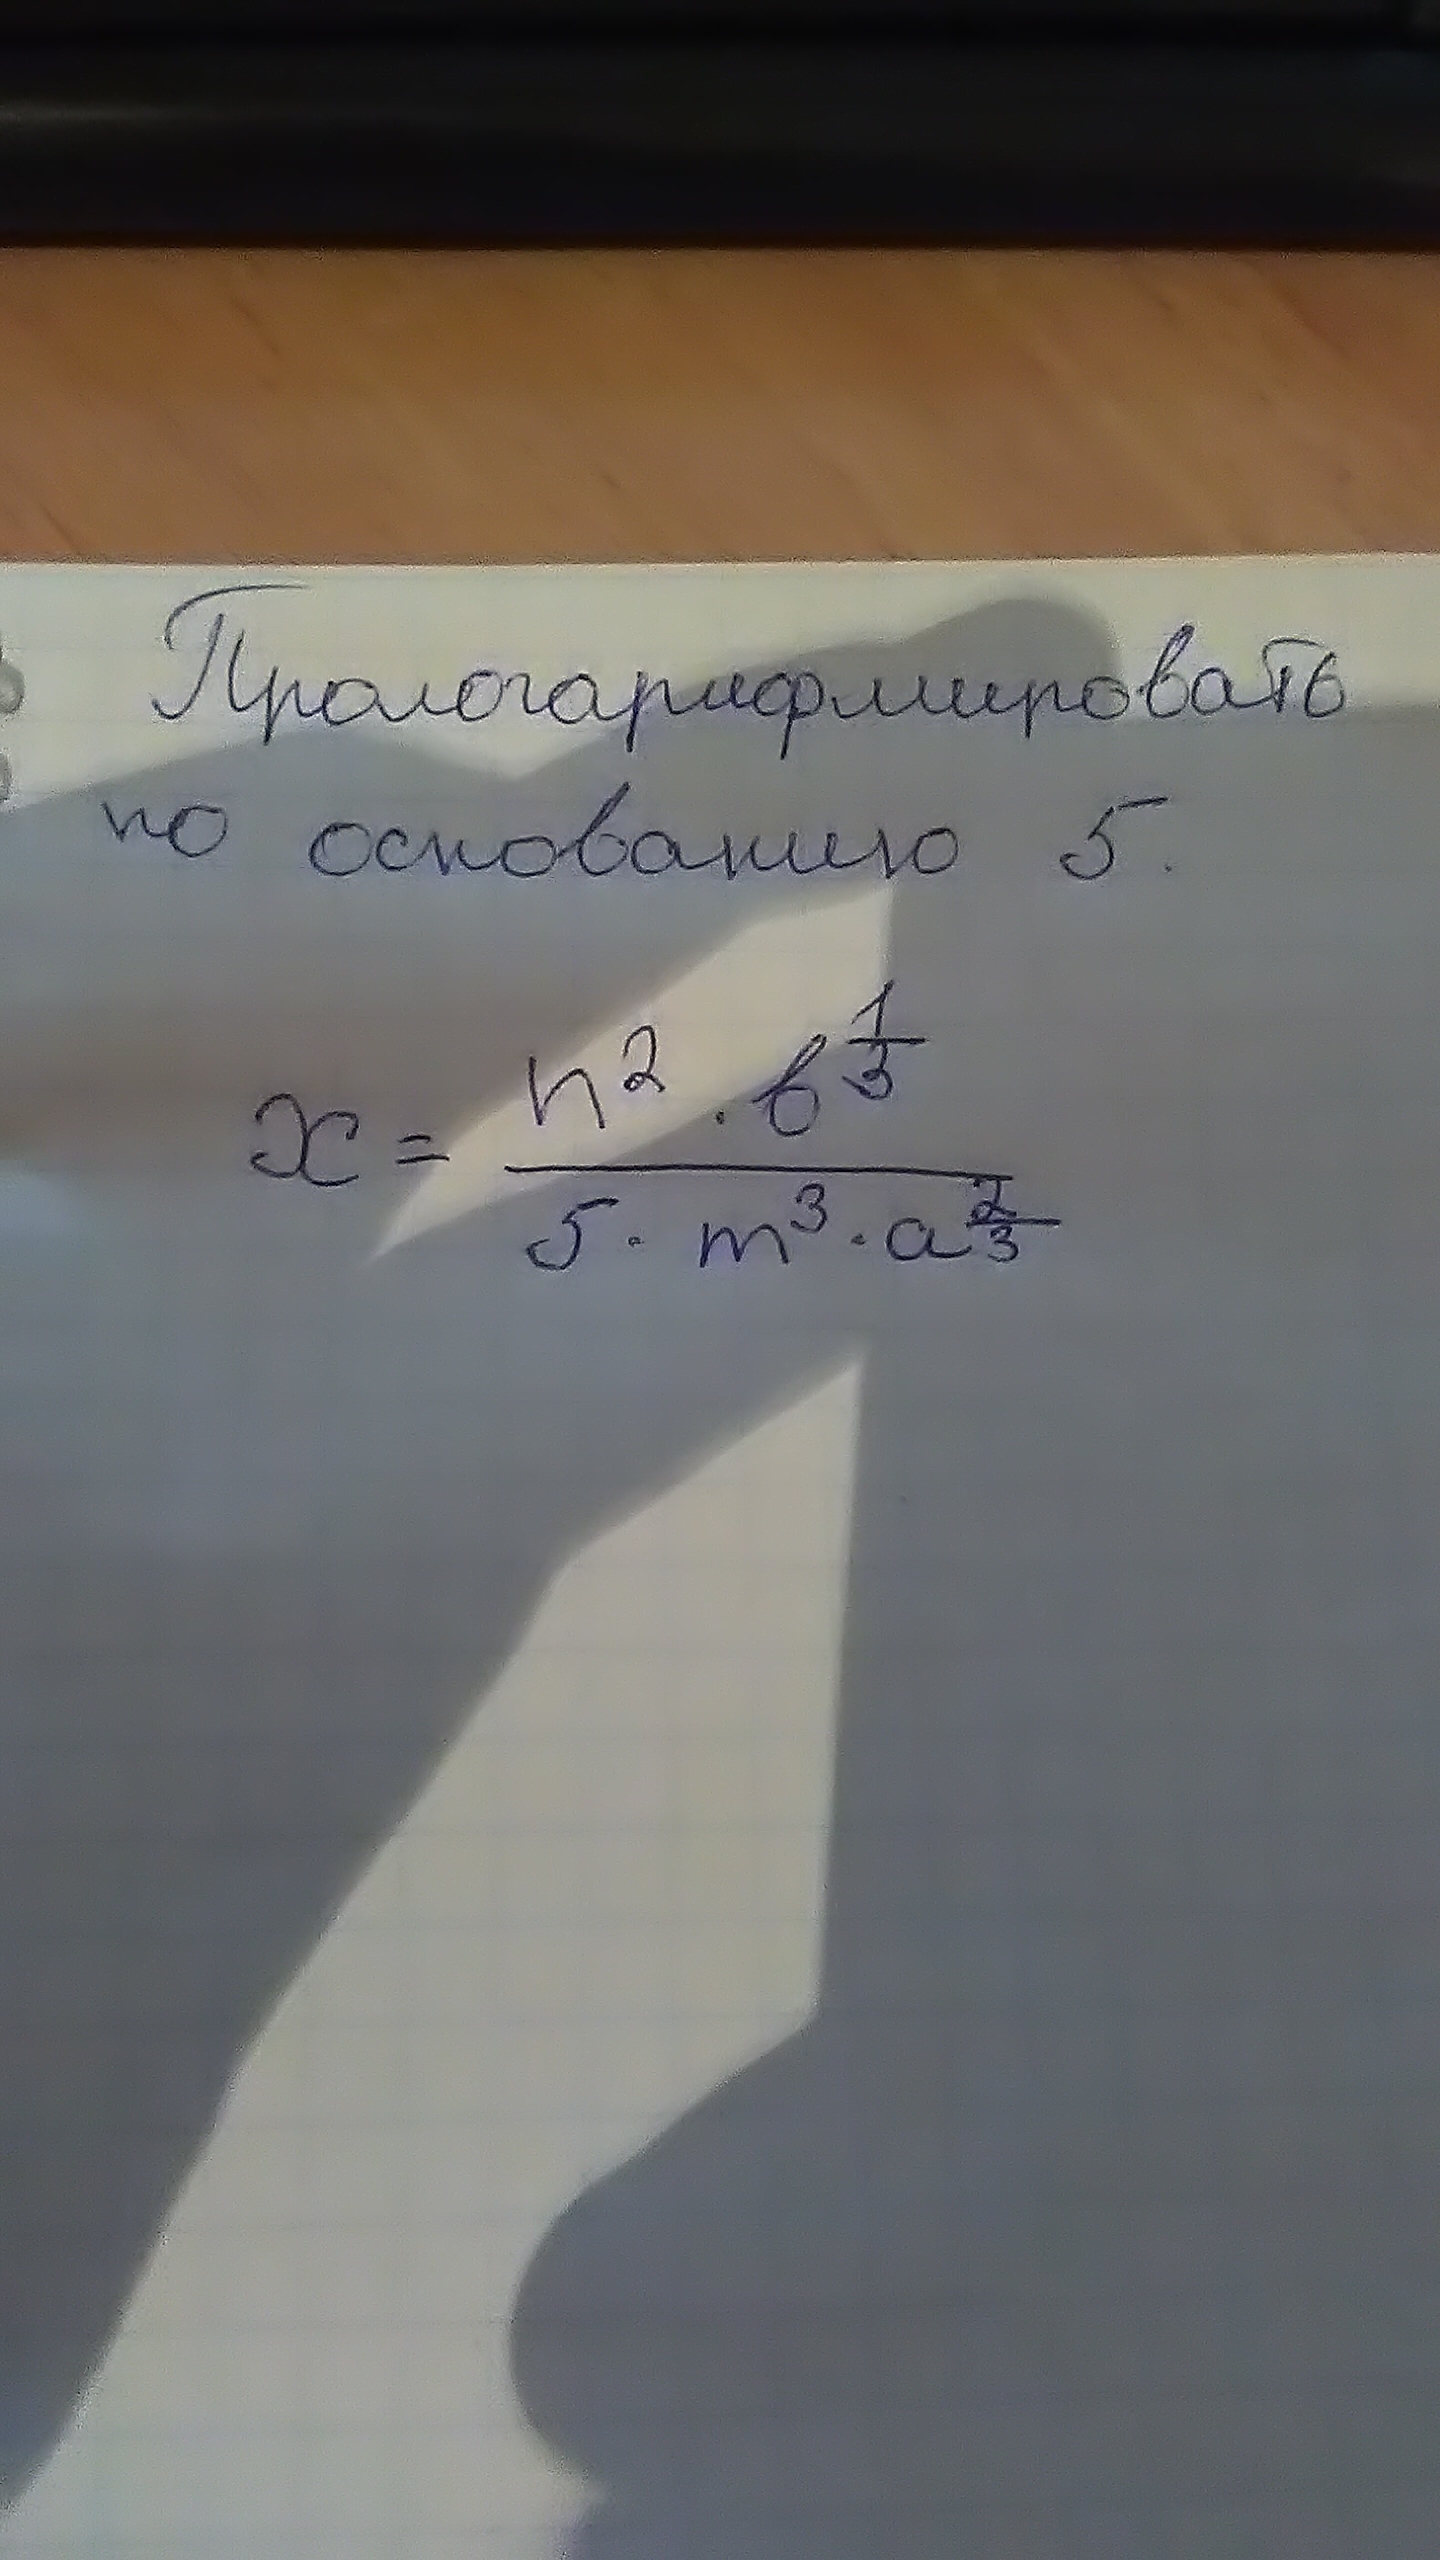 Прологарифмировать
по основанию 5.
x = \frac{n^2 \cdot b^{\frac{1}{3}}}{5 \cdot m^3 \cdot a^{\frac{2}{3}}}